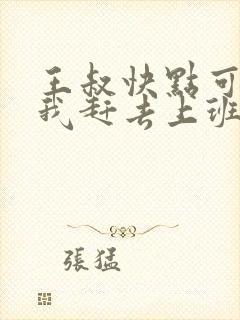 王叔快點可
我赶去上班
張猛